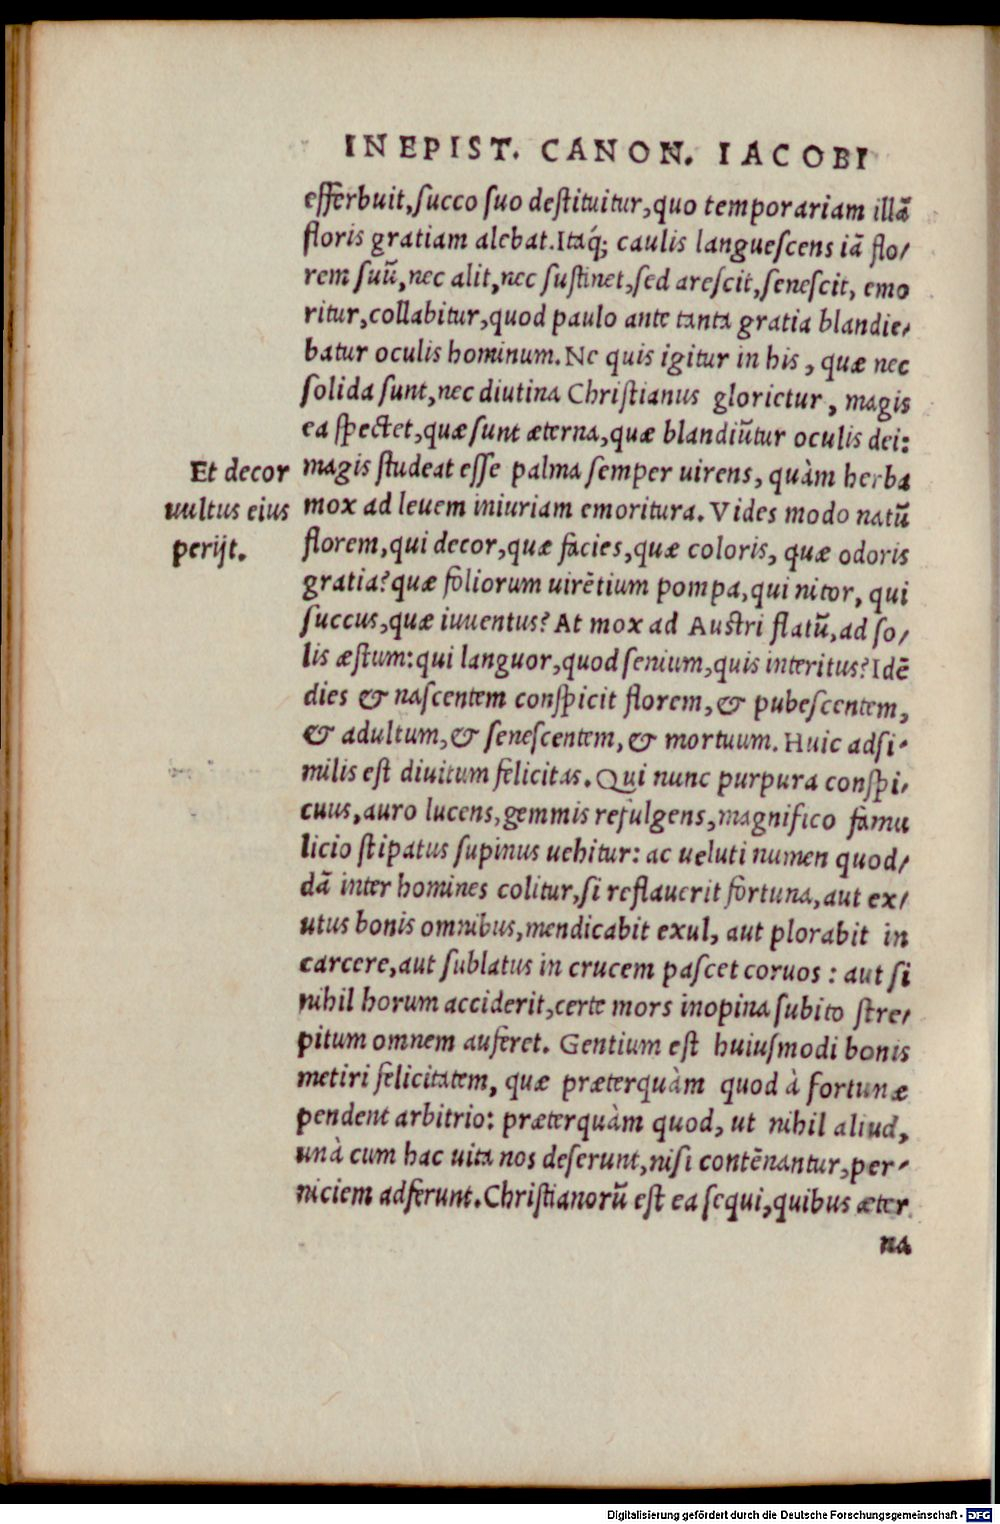 IN EPIST. CANON. IACOBI
efferbuit, succo suo destituitur, quo temporariam illā
floris gratiam alebat. Itaq́; caulis languescens iā flo/
rem suū, nec alit, nec sustinet, sed arescit, senescit, emo
ritur, collabitur, quod paulo ante tanta gratia blandie/
batur oculis hominum. Ne quis igitur in his, quæ nec
solida sunt, nec diutina Christianus glorietur, magis
ea spectet, quæ sunt æterna, quæ blandiūtur oculis dei:
Et decor
uultus eius
perijt.
magis studeat esse palma semper uirens, quàm herba
mox ad leuem iniuriam emoritura. Vides modo natū
florem, qui decor, quæ facies, quæ coloris, quæ odoris
gratia? quæ foliorum uirētium pompa, qui nitor, qui
succus, quæ iuuentus? At mox ad Austri flatū, ad so/
lis æstum: qui languor, quod senium, quis interitus? Idē
dies & nascentem conspicit florem, & pubescentem,
& adultum, & senescentem, & mortuum. Huic adsi/
milis est diuitum felicitas. Qui nunc purpura conspi/
cuus, auro lucens, gemmis refulgens, magnifico famu
licio stipatus supinus uehitur: ac ueluti numen quod/
dā inter homines colitur, si reflauerit fortuna, aut ex/
utus bonis omnibus, mendicabit exul, aut plorabit in
carcere, aut sublatus in crucem pascet coruos: aut si
nihil horum acciderit, certe mors inopina subito stre/
pitum omnem auferet. Gentium est huiusmodi bonis
metiri felicitatem, quæ præterquàm quod à fortunæ
pendent arbitrio: præterquàm quod, ut nihil aliud,
unà cum hac uita nos deserunt, nisi contēnantur, per/
niciem adferunt. Christianorū est ea sequi, quibus æter
na
Digitalisierung gefördert durch die Deutsche Forschungsgemeinschaft - DFG